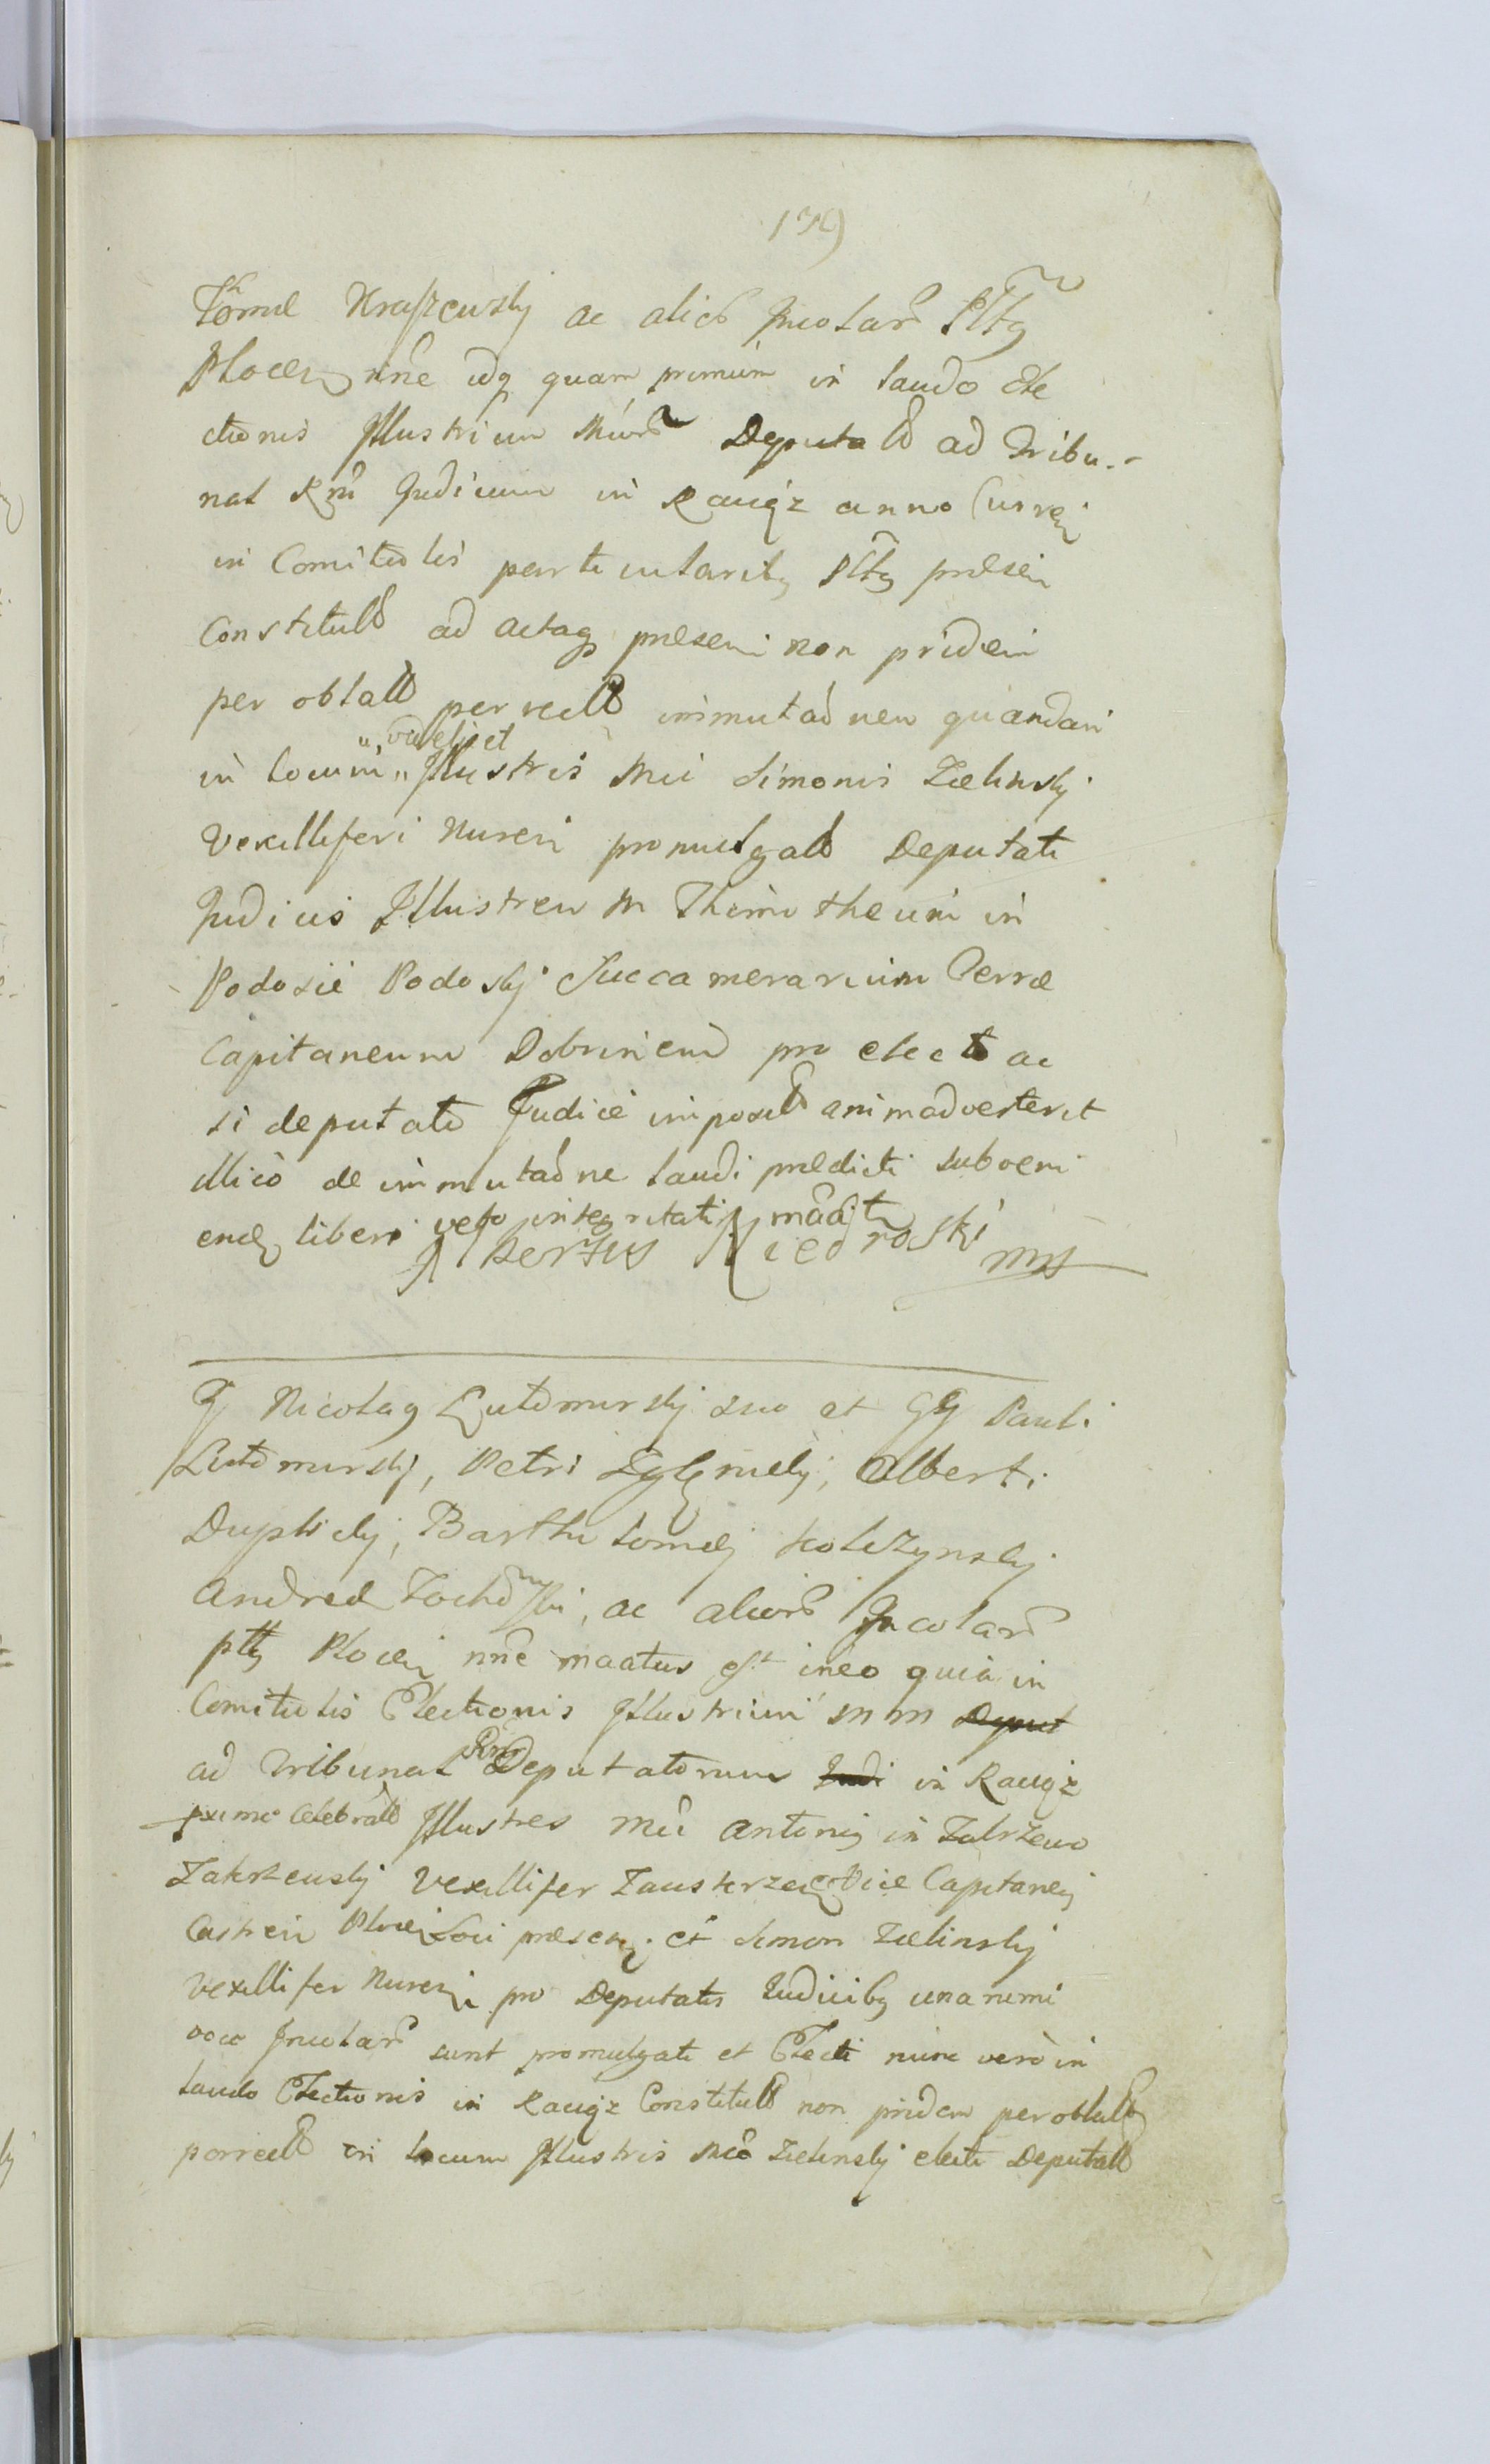 139
Thomæ Kraszewskÿ ac alior Incolar Pltg
Ploceñ nñe idq quam primum in laudo Ele
ctionis Illustrium Mcor Deputator ad Tribu-
nal Rgni Judicum in Raciąz anno Curreñ
in Comitiolis particularibg Pltg præseñ
Constitut ad actaq præseñ non pridem
per oblat porrect immutaõnem quandam
„videlicet
in locum „ Illustris Mci Simonis Zielinskÿ
Vexilliferi Nureñ promulgat Deputati
Judicis Illustrem M Thimotheum in
Podosie Podoskÿ Succamerarium Terræ
Capitaneum Dobrinens pro electo ac
si deputato Judice imposit animadverteret
illico de immutaõne laudi prædicti subveni
endo liberi veto integritati maaĩt
Albertus Niedroski mp
G Nicolaq Lutomirskÿ suo et GG Pauli
Lutomirskÿ, Petri, Alberti
Duplickÿ, Bartholomei Kolczynskÿ
Andreæ Zochowski, ac alior Incolar
pltg Ploceñ nñe maatus est ineo quia in
Comitiolis Electionis Illustrium M M Deput
ad Tribunal Rgni Deputatorum Judi in Raciąz
pxime Celebrat Illustres Mci Antonig in Zakrzewo
Zakrzewskÿ Vexillifer Zawskrzeñ Vice Capitaneg
Castreñ Ploceñ Loci præseñ et Simon Zielinskÿ
Vexillifer Nureñ pro Deputatis Judicibg unanimi
voce Incolar sunt promulgati et Electi nunc vero in
laudo Electionis in Raciąz Constitut non pridem per oblat
porrect in locum Illustris Mci Zielinskÿ electi Deputati